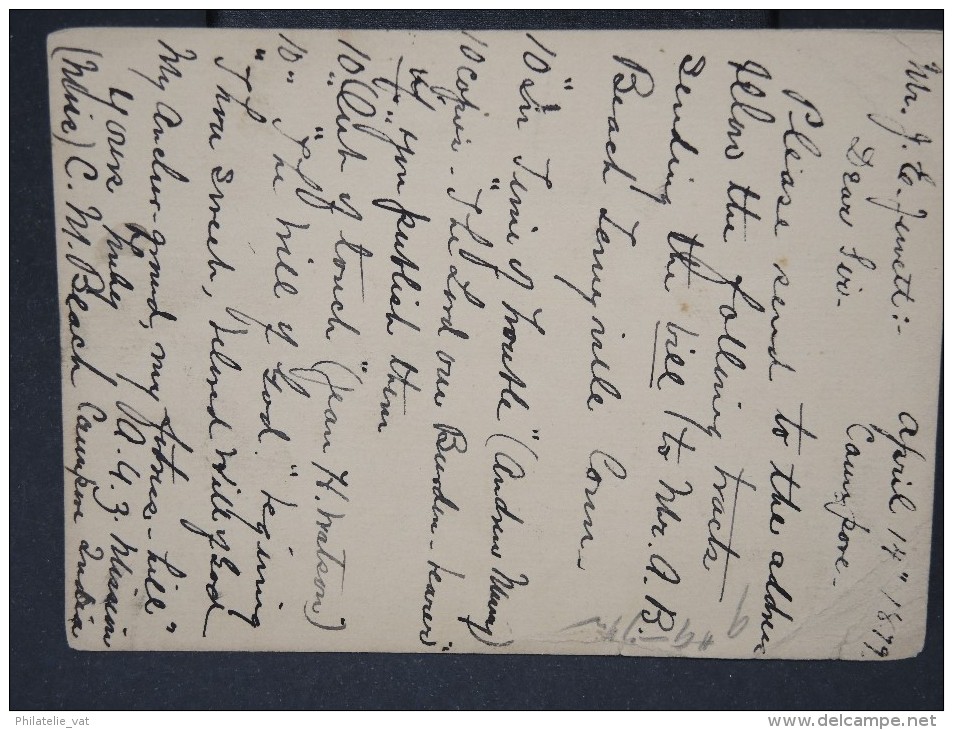 April 17" 1879.
Cawnpore.-
Mr. J. E. Jewett:-
Dear Sir.-
Please send to the address
below the following tracts
sending the bill to Mr. A. B.
Beach Terryville Conn.-
10 "In Time of Trouble" (Andrew Murray)
10 copies - "The Lord our Burden-bearer"
if you publish them
10 "Out of touch" (Jean H. Watson)
10 " "The Will of God." beginning
"Thou Sweet, beloved Will of God
My Anchor-ground, my fortress-hill."
Yours truly
(Miss) C. M. Beach Cawnpore India
Mission
Philatelie_vat
www.delcampe.net